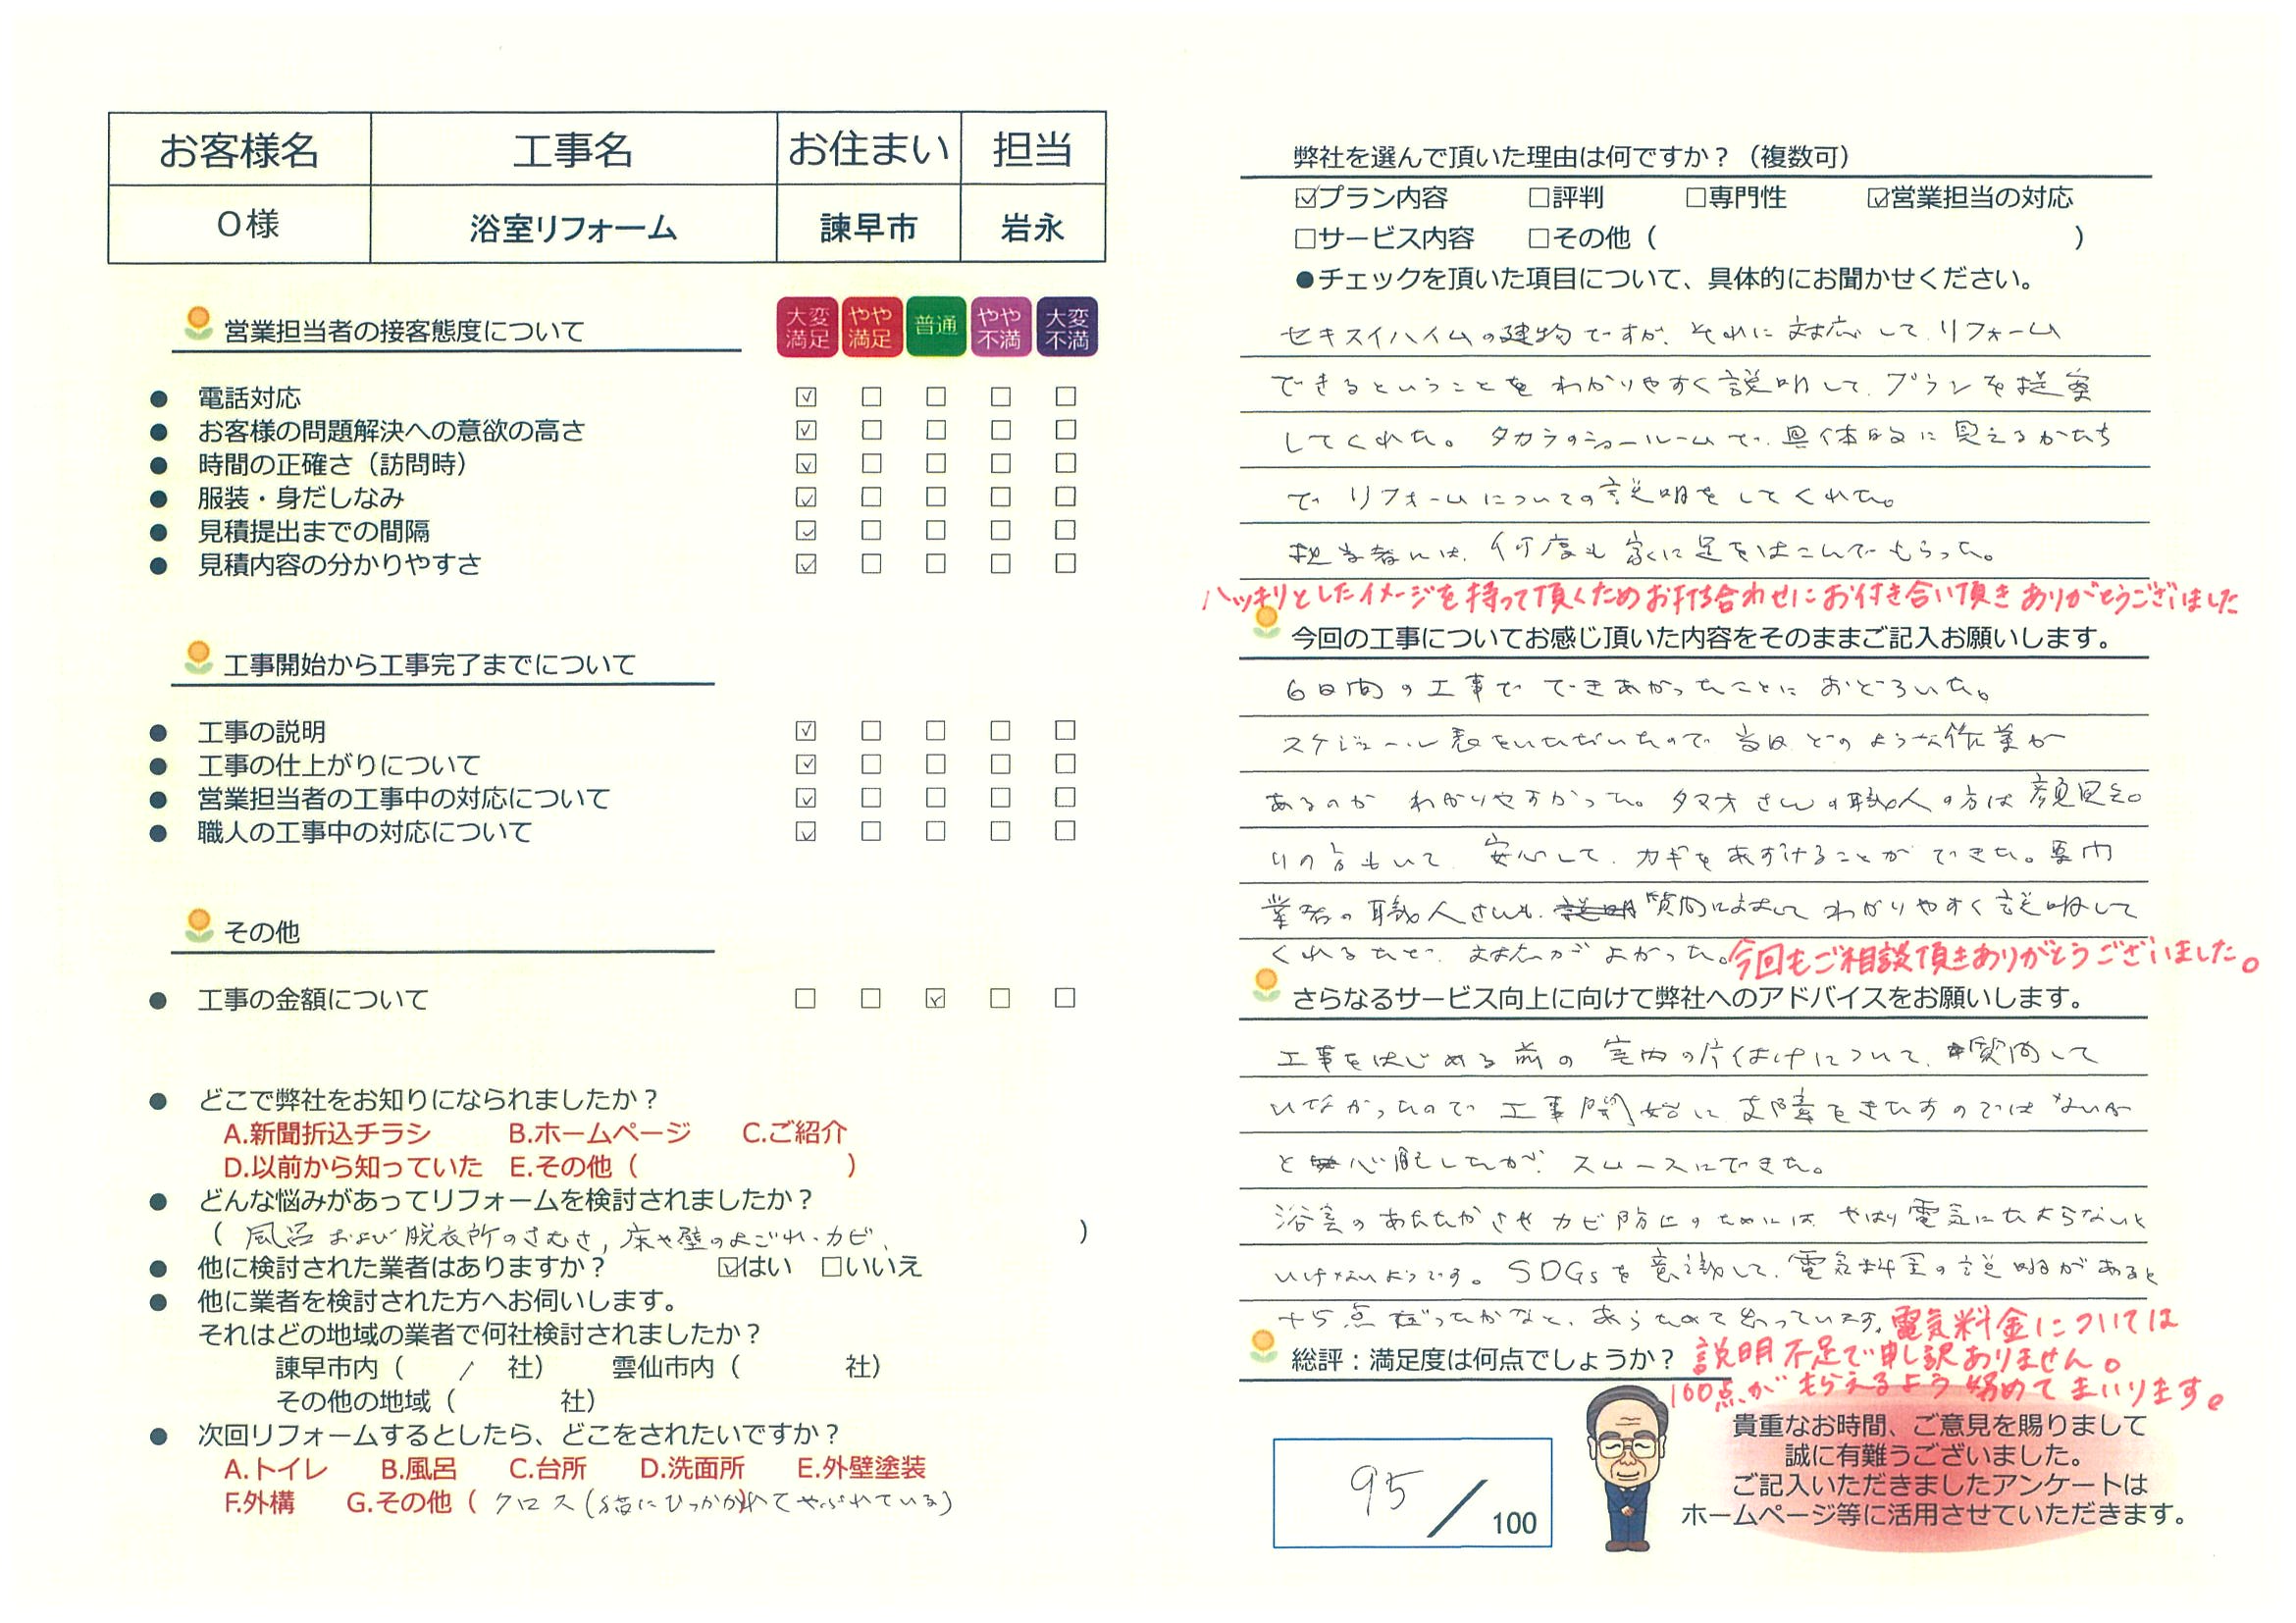 お客様名 工事名 お住まい 担当
O様 浴室リフォーム 諫早市 岩永
営業担当者の接客態度について
大変満足 やや満足 普通 やや不満 大変不満
● 電話対応 ☑ □ □ □ □
● お客様の問題解決への意欲の高さ ☑ □ □ □ □
● 時間の正確さ（訪問時） ☑ □ □ □ □
● 服装・身だしなみ ☑ □ □ □ □
● 見積提出までの間隔 ☑ □ □ □ □
● 見積内容の分かりやすさ ☑ □ □ □ □
工事開始から工事完了までについて
● 工事の説明 ☑ □ □ □ □
● 工事の仕上がりについて ☑ □ □ □ □
● 営業担当者の工事中の対応について ☑ □ □ □ □
● 職人の工事中の対応について ☑ □ □ □ □
その他
● 工事の金額について □ □ ☑ □ □
● どこで弊社をお知りになられましたか？
A.新聞折込チラシ B.ホームページ C.ご紹介
D.以前から知っていた E.その他（ ）
● どんな悩みがあってリフォームを検討されましたか？
（ 風呂および脱衣所のさむさ, 床や壁のよごれ・カビ、 ）
● 他に検討された業者はありますか？ ☑はい □いいえ
● 他に業者を検討された方へお伺いします。
それはどの地域の業者で何社検討されましたか？
諫早市内（ 1 社） 雲仙市内（ 社）
その他の地域（ 社）
● 次回リフォームするとしたら、どこをされたいですか？
A.トイレ B.風呂 C.台所 D.洗面所 E.外壁塗装
F.外構 G.その他（ クロス(猫にひっかかれてやぶれている)
弊社を選んで頂いた理由は何ですか？（複数可）
☑プラン内容 □評判 □専門性 ☑営業担当の対応
□サービス内容 □その他（ ）
●チェックを頂いた項目について、具体的にお聞かせください。
セキスイハイムの建物ですが、それに対応して、リフォーム
できるということを わかりやすく説明して、プランを提案
してくれた。タカラのショールームで、具体的に見えるかたち
で リフォームについての説明をしてくれた。
担当者には、何度も家に足をはこんでもらった。
ハッキリとしたイメージを持って頂くためお打ち合わせにお付き合い頂きありがとうございました
今回の工事についてお感じ頂いた内容をそのままご記入お願いします。
6日間の工事で できあがったことに おどろいた。
スケジュール表をいただいたので 当日 どのような作業が
あるのか わかりやすかった。タマオさんの職人の方は 顔見知
りの方もいて、安心して、カギをあずけることができた。専門
業者の職人さんも、質問に対して わかりやすく説明して
くれるなど、対応がよかった。今回もご相談頂きありがとうございました。
さらなるサービス向上に向けて弊社へのアドバイスをお願いします。
工事をはじめる前の 室内の片付けについて、質問して
いなかったので 工事開始に 支障をきたすのではないか
と 心配したが、スムースにできた。
浴室のあたたかさやカビ防止のためには、やはり電気にたよらないと
いけないようです。SDGsを意識して、電気料金の説明があると
+5点だったかなと、あらためて思っています。電気料金については
総評：満足度は何点でしょうか？ 説明不足で申し訳ありません。
100点がもらえるよう努めてまいります。
貴重なお時間、ご意見を賜りまして
誠に有難うございました。
ご記入いただきましたアンケートは
ホームページ等に活用させていただきます。
95／100